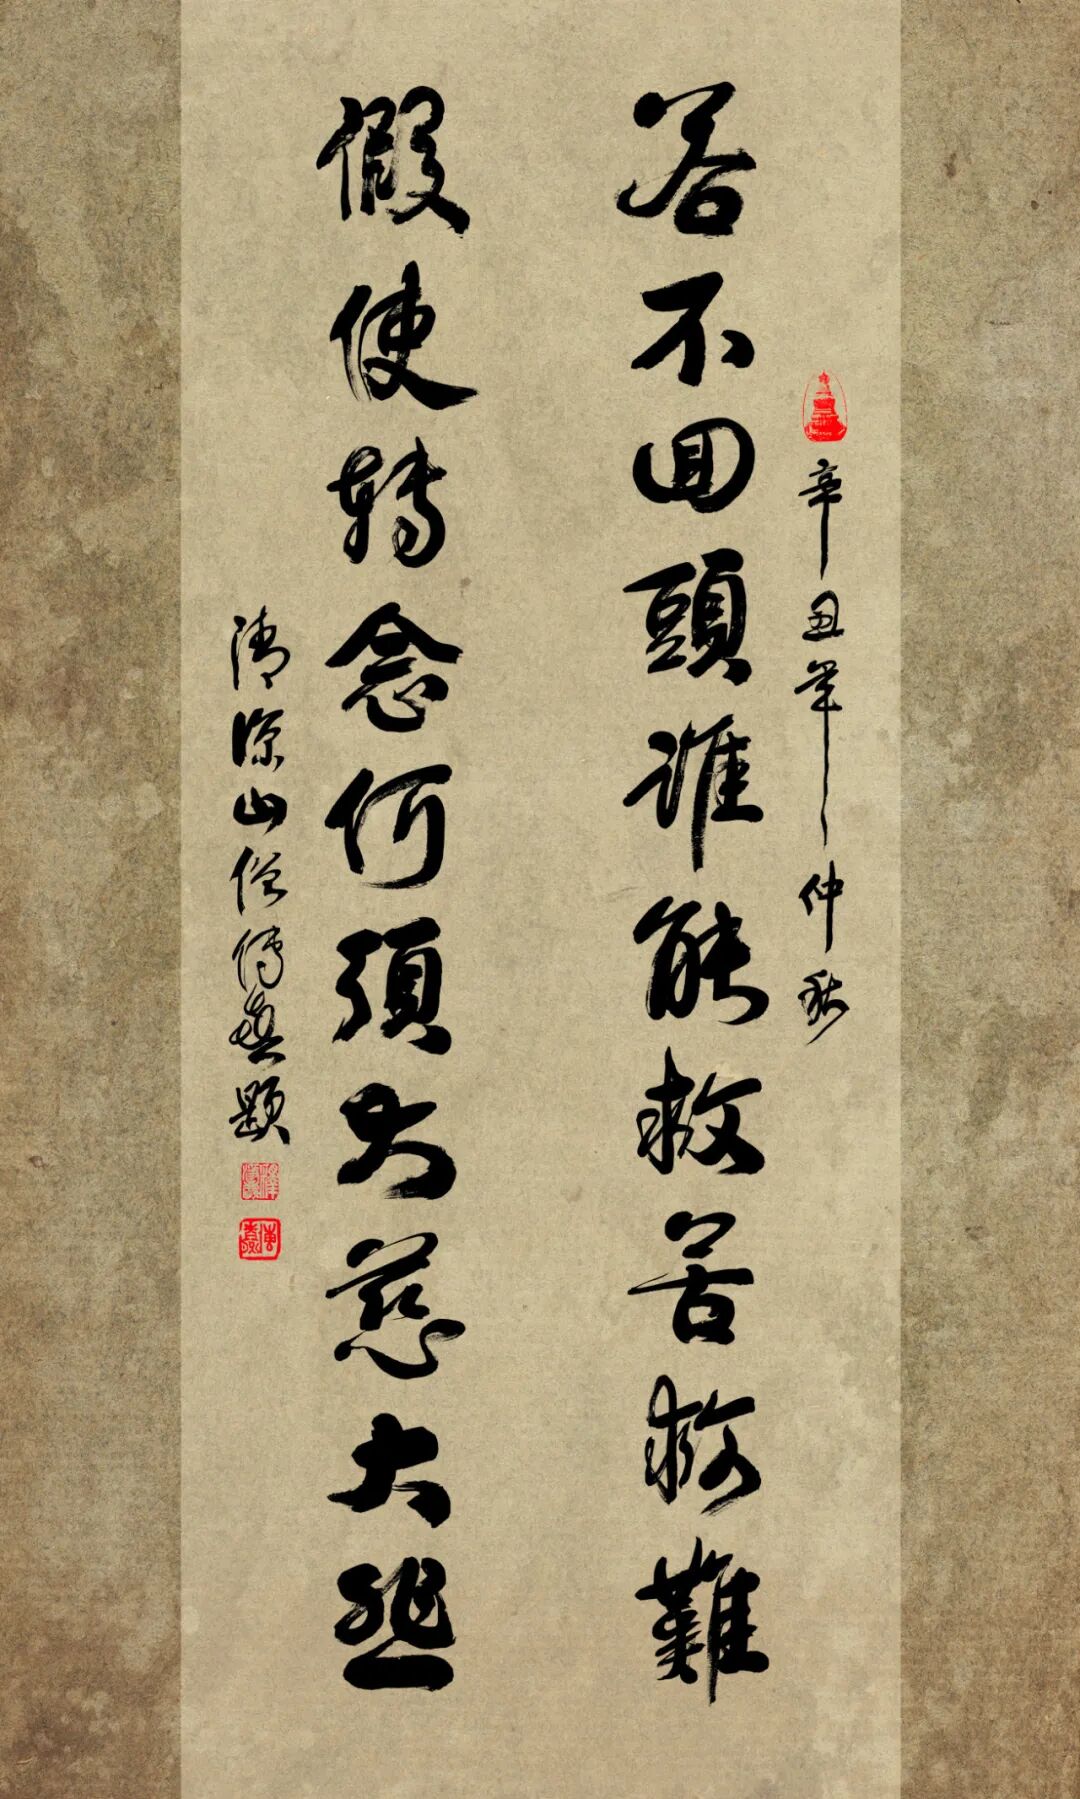 辛丑年仲秋
若不回頭谁能救苦救難
假使轉念何須大慈大悲
清凉山僧傳真題